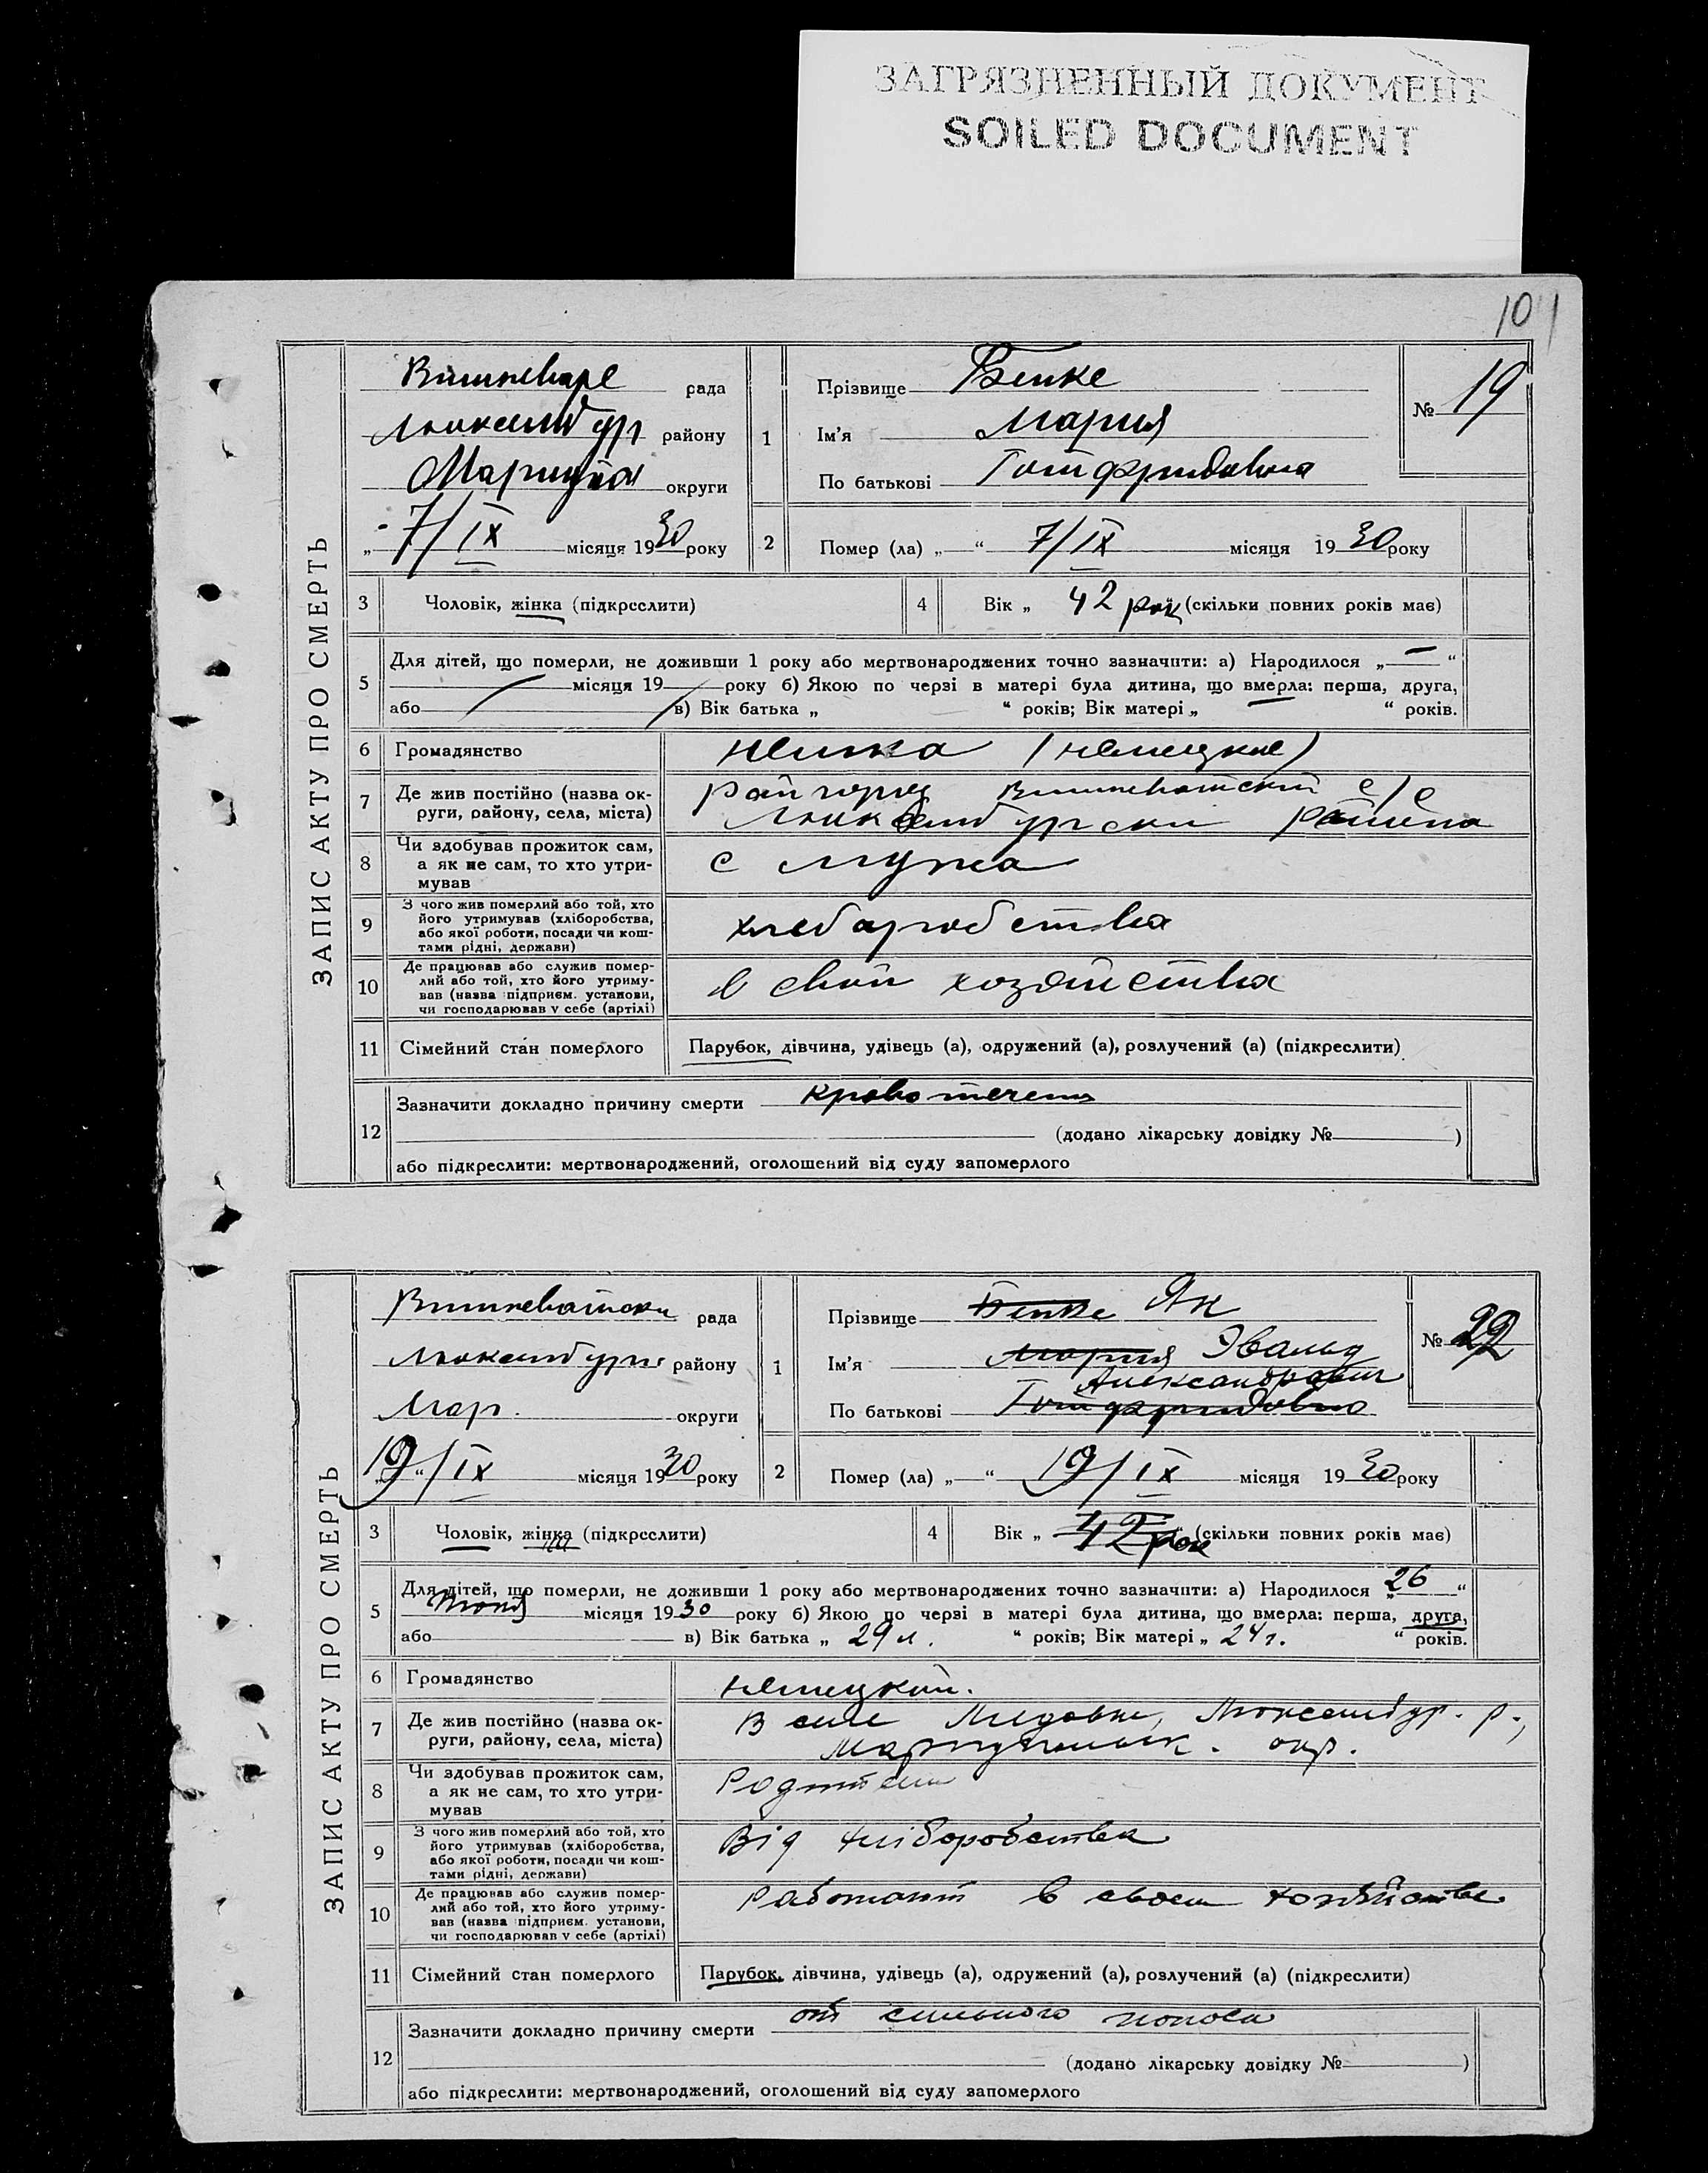 ЗАГРЯЗНЕННЫЙ ДОКУМЕНТ
SOILED DOCUMENT
101
ЗАПИС АКТУ ПРО СМЕРТЬ
рада
району
округи
„ 7/IX місяця 1930 року
1
Прізвище Бенке
Ім'я Мария
По батькові Готфридовна
№ 19
2 Помер (ла) „ “ 7/IX місяця 1930 року
3 Чоловік, жінка (підкреслити)
4 Вік „ 42 рок (скільки повних років має)
5 Для дітей, що померли, не доживши 1 року або мертвонароджених точно зазначити: а) Народилося „ — “
місяця 19 року б) Якою по черзі в матері була дитина, що вмерла: перша, друга,
або в) Вік батька „ “ років; Вік матері „ “ років.
6 Громадянство немка (немецкие)
7 Де жив постійно (назва ок-
руги, району, села, міста)
с/с
района
8 Чи здобував прожиток сам,
а як не сам, то хто утри-
мував
с мужа
9 З чого жив померлий або той, хто
його утримував (хліборобства,
або якої роботи, посади чи кош-
тами рідні, держави)
10 Де працював або служив помер-
лий або той, хто його утриму-
вав (назва підприєм. установи,
чи господарював у себе (артілі)
в свой хозяйства
11 Сімейний стан померлого Парубок, дівчина, удівець (а), одружений (а), розлучений (а) (підкреслити)
12 Зазначити докладно причину смерти кровотечения
(додано лікарську довідку № )
або підкреслити: мертвонароджений, оголошений від суду запомерлого
ЗАПИС АКТУ ПРО СМЕРТЬ
рада
району
Мар. округи
„19“/IX місяця 1930 року
1
Прізвище Бенке Як
Ім'я Мария Эвальд
Александрович
По батькові Готфридовна
№ 22
2 Помер (ла) „ “ 19/IX місяця 1930 року
3 Чоловік, жінка (підкреслити)
4 Вік „ 42 рок (скільки повних років має)
5 Для дітей, що померли, не доживши 1 року або мертвонароджених точно зазначити: а) Народилося „26“
місяця 1930 року б) Якою по черзі в матері була дитина, що вмерла: перша, друга,
або в) Вік батька „ 29 л. “ років; Вік матері „ 24 г. “ років.
6 Громадянство немецкий.
7 Де жив постійно (назва ок-
руги, району, села, міста)
В селе Люксембур. р.,
окр.
8 Чи здобував прожиток сам,
а як не сам, то хто утри-
мував
Родители
9 З чого жив померлий або той, хто
його утримував (хліборобства,
або якої роботи, посади чи кош-
тами рідні, держави)
Від хліборобства
10 Де працював або служив помер-
лий або той, хто його утриму-
вав (назва підприєм. установи,
чи господарював у себе (артілі)
Работают в своем хозяйстве
11 Сімейний стан померлого Парубок, дівчина, удівець (а), одружений (а), розлучений (а) (підкреслити)
12 Зазначити докладно причину смерти от сильного поноса
(додано лікарську довідку № )
або підкреслити: мертвонароджений, оголошений від суду запомерлого